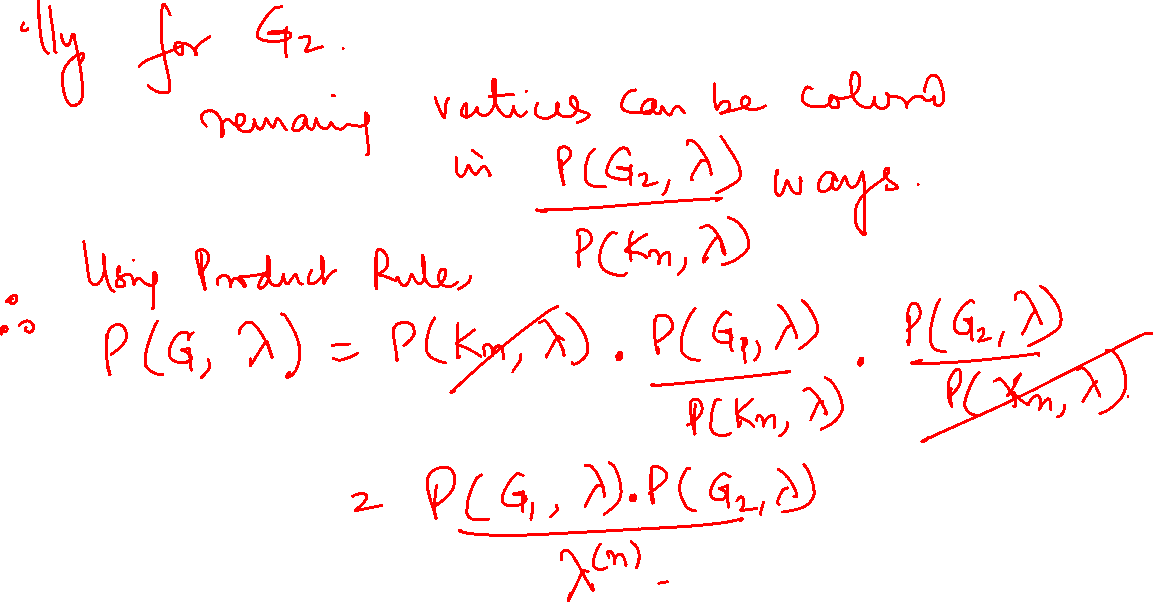 'lly for G₂.
remaing vertices can be colored
in P(G₂, λ) / P(Kₙ, λ) ways.
∴ Using Product Rule,
P(G, λ) = P(Kₙ, λ) · P(G₁, λ) / P(Kₙ, λ) · P(G₂, λ) / P(Kₙ, λ).
= P(G₁, λ)·P(G₂, λ) / λ⁽ⁿ⁾.